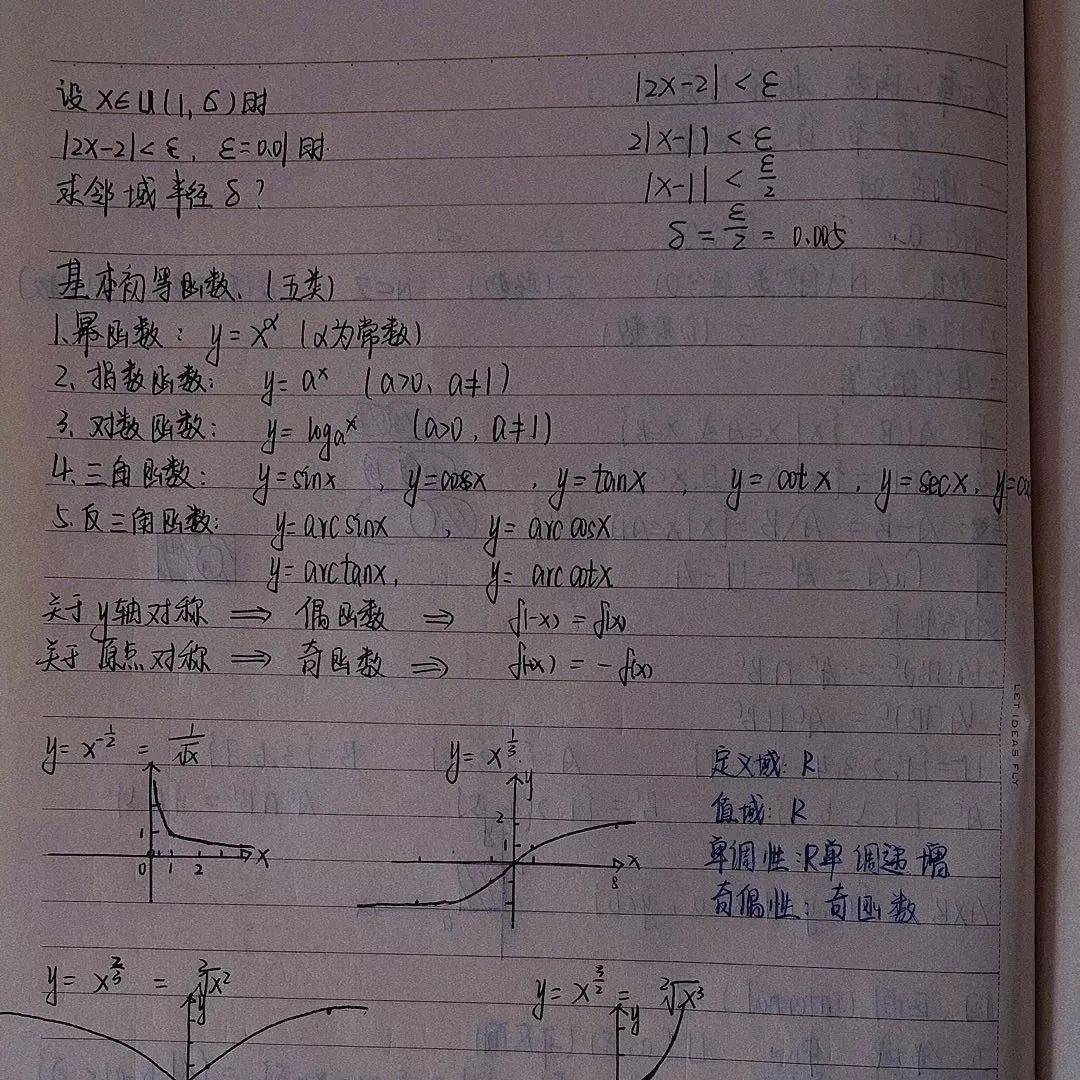 设 x∈U(1, δ)时
|2x-2|<ε, ε=0.01时
求邻域半径 δ?
|2x-2| < ε
2|x-1| < ε
|x-1| < ε/2
δ = ε/2 = 0.005
基本初等函数、(五类)
1.幂函数: y = x^α (α为常数)
2、指数函数: y = a^x (a>0、a≠1)
3、对数函数: y = log_a^x (a>0, a≠1)
4、三角函数: y=sinx , y=cosx , y=tanx , y=cotx, y=secx, y=cs
5.反三角函数: y=arcsinx , y=arccosx
y=arctanx, y=arccotx
关于y轴对称 ⇒ 偶函数 ⇒ f(-x) = f(x)
关于原点对称 ⇒ 奇函数 ⇒ f(-x) = -f(x)
y = x^{-1/2} = 1/√x
1
0 1 2 x
y = x^{1/3}
y
2
1
8 x
定义域: R
值域: R
单调性:R单调递增
奇偶性: 奇函数
y = x^{2/3} = ∛x²
y
y = x^{3/2} = ²√x³
y
LET IDEAS FLY